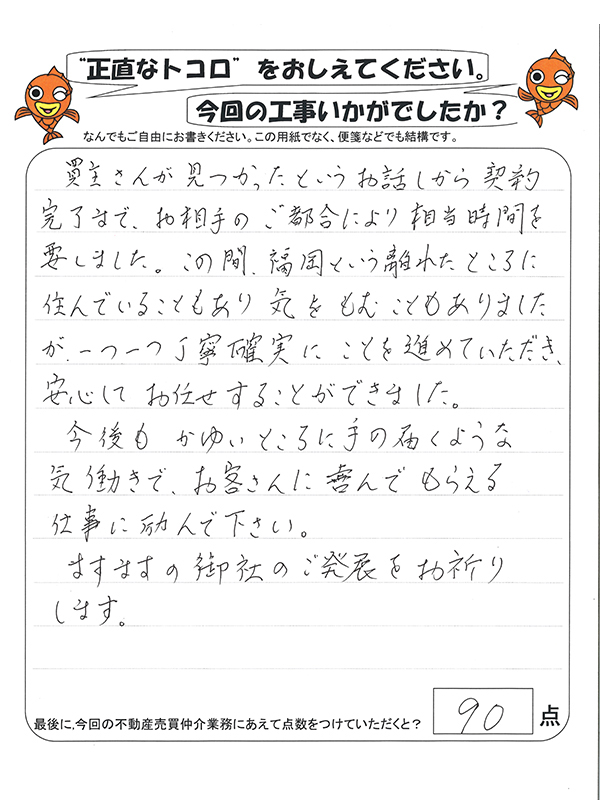 "正直なトコロ"をおしえてください。
今回の工事いかがでしたか？
なんでもご自由にお書きください。この用紙でなく、便箋などでも結構です。
買主さんが見つかったというお話しから契約
完了まで、お相手のご都合により相当時間を
要しました。この間、福岡という離れたところに
住んでいることもあり気をもむこともありました
が、一つ一つ丁寧確実にことを進めていただき、
安心してお任せすることができました。
今後もかゆいところに手の届くような
気働きで、お客さんに喜んでもらえる
仕事に励んで下さい。
ますますの御社のご発展をお祈り
します。
最後に、今回の不動産売買仲介業務にあえて点数をつけていただくと？ 90 点